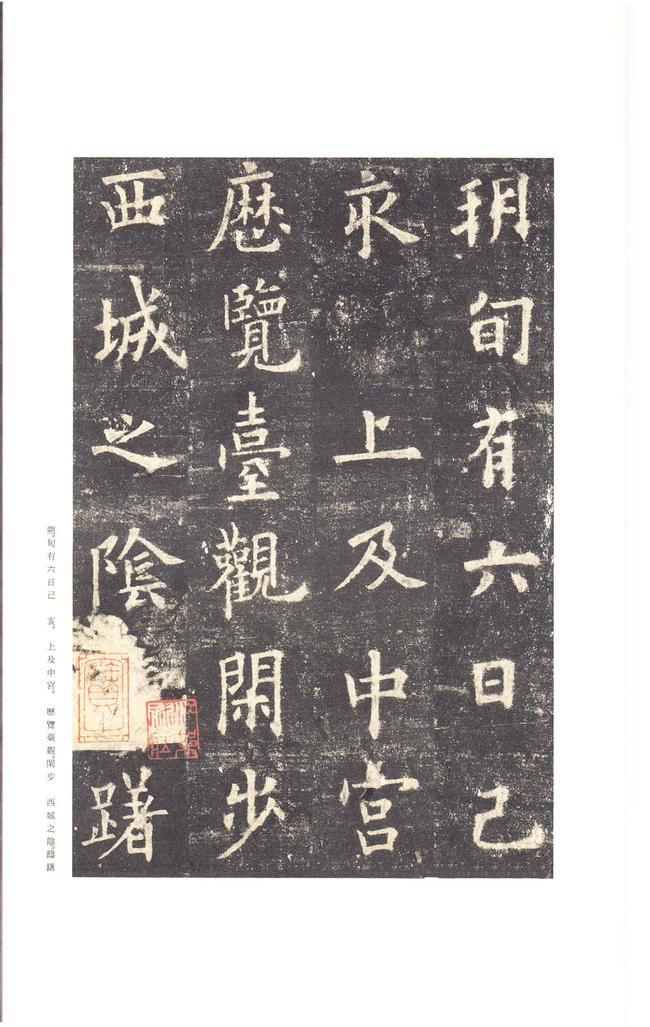 朔旬有六日己
亥上及中宮
歷覽臺觀閑步
西城之陰躇
朔。旬有六日己 亥。上及中宮。歷覽臺觀。閑步 西城之陰。躊躇